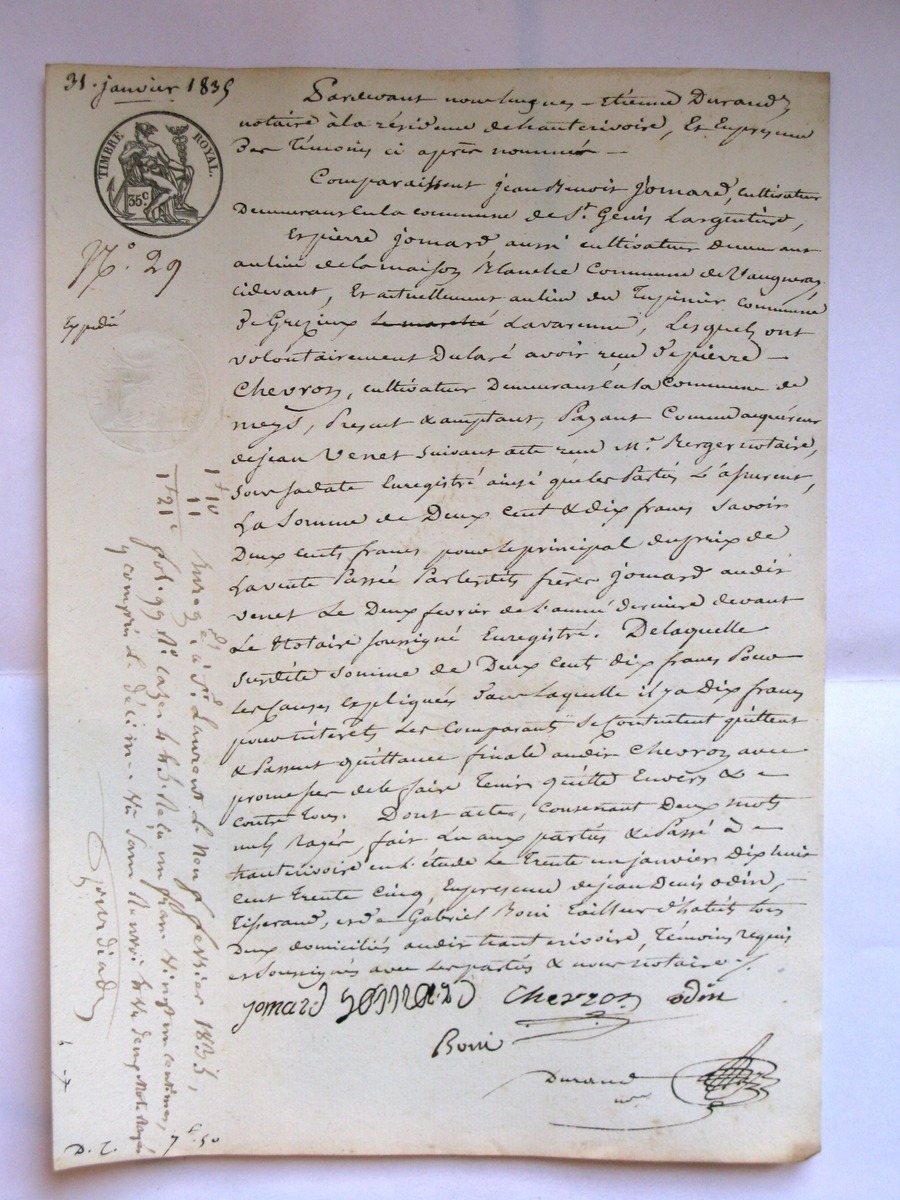 31. janvier 1835
TIMBRE ROYAL.
35c.
No. 29
Expédié
Pardevant nous hugues-Etienne Durand,
notaire à la résidence de hauterivoire, Et En presence
Des Témoins ci après nommés —
Comparaissent jean Benoit jomard, cultivateur
Demeurant En la commune de St. Genis Largentière,
Et pierre jomard aussi cultivateur Demeurant
au lieu de la maison Blanche Commune de Vaugneray
cidevant, Et actuellement au lieu du commune
De Grezieux le marché Lavarenne, Lesquels ont
volontairement Déclaré avoir reçu De pierre —
Chevron, cultivateur Demeurant En la Commune de
meys, Present & acceptant, Payant Comme acquéreur
de jean Venet suivant acte reçu Me. Berger notaire,
sous sa date Enregistré ainsi que les Parties L'assurent,
La Somme de Deux cent & dix francs savoir
Deux cents francs pour le principal du prix de
La vente Passée Par lesdits frères jomard audit
venet Le Deux fevrier de L'année dernière devant
Le Notaire soussigné Enregistré. De laquelle
susdite somme de Deux cents dix francs Pour
les Causes expliquées Dans Laquelle il y a Dix francs
pour intérêts Les Comparants Se Contentent quittent
& Passent quittance finale audit Chevron avec
promesse de le faire Tenir quitte Envers & —
contre Tous. Dont acte, Contenant Deux mots
nuls Rayés, fait Lu aux parties & Passé à —
hauterivoire en L'étude Le Trente un janvier Dix huit
cent Trente Cinq En presence de jean Denis odin, —
Tisserand, et De Gabriel Boni Tailleur d'habits tous
Deux domiciliés audit hauterivoire, Témoins requis
et Soussignés avec Les parties & nous notaire ./.
jomard jomard Chevron odin
Boni
Durand
nore
1f 10
11
1f 21c
Enregé. à St. Laurent le neuf fevrier 1835,
fol. 99 No. Case 4 Reçu un franc vingt un centimes,
y compris le décime deux mots rayés
D. T. 7f. 50